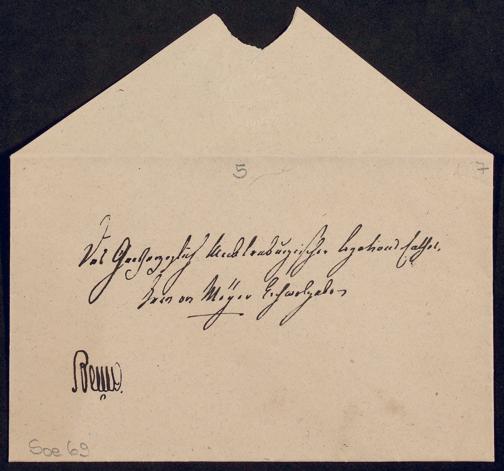 5
7
Des Großherzoglich Mecklenburgischen Legations
Herrn von Meyer Hochwohlgeboren
Soe 69